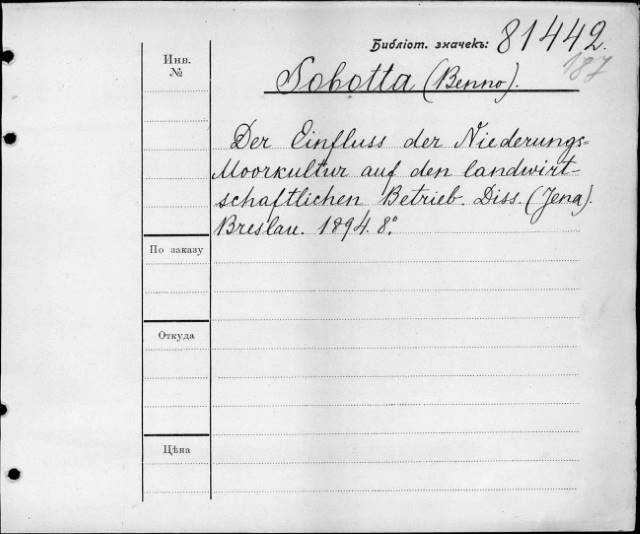 Библіот. значекъ: 81442.
187
Инв.
№
Sobotta (Benno).
Der Einfluss der Niederungs=
Moorkultur auf den landwirt-
schaftlichen Betrieb. Diss. (Jena).
Breslau. 1894. 8°.
По заказу
Откуда
Цѣна